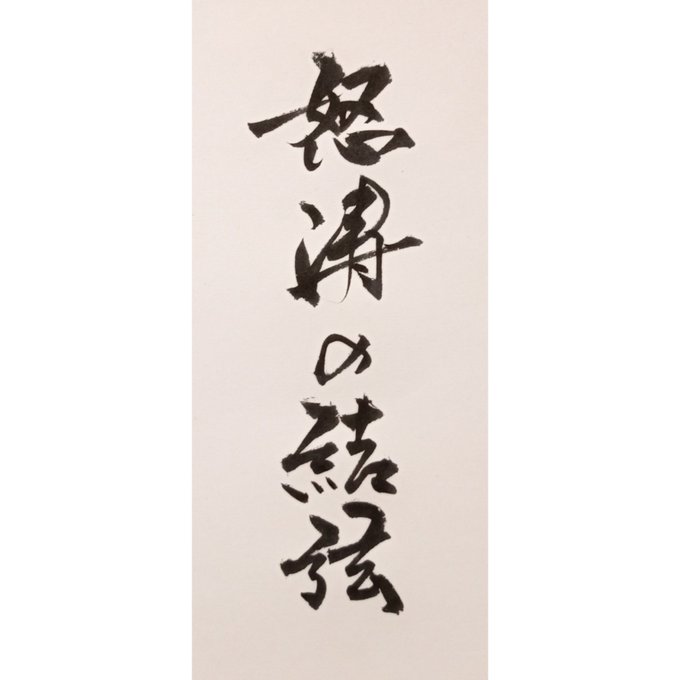 怒涛の結弦